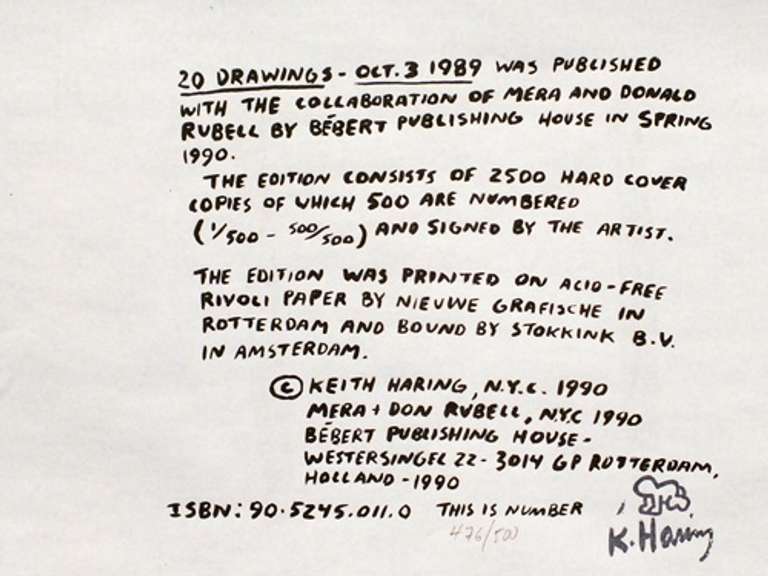 20 DRAWINGS - OCT. 3 1989 WAS PUBLISHED
WITH THE COLLABORATION OF MERA AND DONALD
RUBELL BY BÉBERT PUBLISHING HOUSE IN SPRING
1990.
THE EDITION CONSISTS OF 2500 HARD COVER
COPIES OF WHICH 500 ARE NUMBERED
(1/500 - 500/500) AND SIGNED BY THE ARTIST.
THE EDITION WAS PRINTED ON ACID-FREE
RIVOLI PAPER BY NIEUWE GRAFISCHE IN
ROTTERDAM AND BOUND BY STOKKINK B.V.
IN AMSTERDAM.
© KEITH HARING, N.Y.C. 1990
MERA + DON RUBELL, NYC 1990
BÉBERT PUBLISHING HOUSE -
WESTERSINGEL 22 - 3014 GP ROTTERDAM,
HOLLAND - 1990
ISBN: 90.5245.011.0 THIS IS NUMBER
476/500
K. Haring